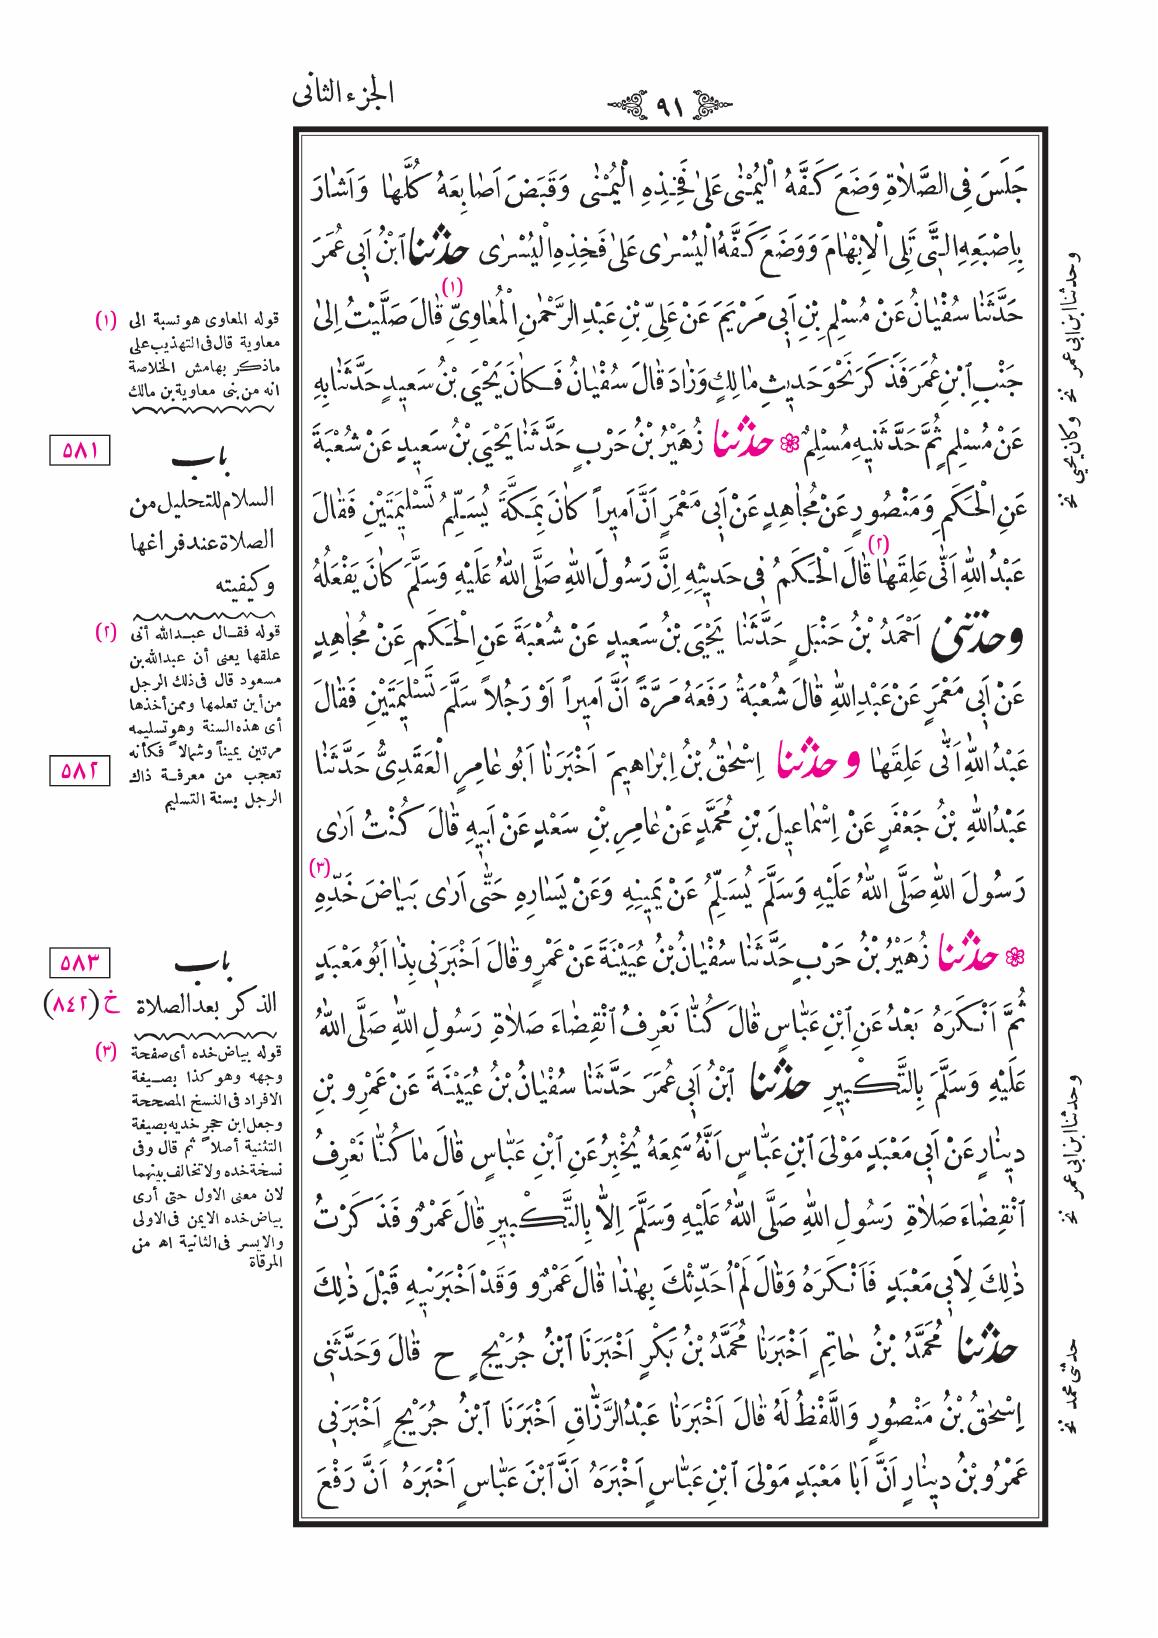 الجزء الثانى
٩١
جَلَسَ فِى الصَّلَاةِ وَضَعَ كَفَّهُ الْيُمْنٰى عَلىٰ فَخِذِهِ الْيُمْنٰى وَقَبَضَ اَصَابِعَهُ كُلَّهَا وَاَشَارَ
بِاِصْبَعِهِ الَّتِى تَلِى الْاِبْهَامَ وَوَضَعَ كَفَّهُ الْيُسْرٰى عَلىٰ فَخِذِهِ الْيُسْرٰى حدثنا ابْنُ اَبِى عُمَرَ
حَدَّثَنَا سُفْيَانُ عَنْ مُسْلِمِ بْنِ اَبِى مَرْيَمَ عَنْ عَلِىِّ بْنِ عَبْدِ الرَّحْمٰنِ الْمُعَاوِىِّ (١) قَالَ صَلَّيْتُ اِلىٰ
جَنْبِ ابْنِ عُمَرَ فَذَكَرَ نَحْوَ حَدِيثِ مَالِكٍ وَزَادَ قَالَ سُفْيَانُ فَكَانَ يَحْيَى بْنُ سَعِيدٍ حَدَّثَنَا بِهِ
عَنْ مُسْلِمٍ ثُمَّ حَدَّثَنِيهِ مُسْلِمٌ ❁ حدثنا زُهَيْرُ بْنُ حَرْبٍ حَدَّثَنَا يَحْيَى بْنُ سَعِيدٍ عَنْ شُعْبَةَ
عَنِ الْحَكَمِ وَمَنْصُورٍ عَنْ مُجَاهِدٍ عَنْ اَبِى مَعْمَرٍ اَنَّ اَمِيراً كَانَ بِمَكَّةَ يُسَلِّمُ تَسْلِيمَتَيْنِ فَقَالَ
عَبْدُ اللّٰهِ اَنّٰى عَلِقَهَا (٢) قَالَ الْحَكَمُ فِى حَدِيثِهِ اِنَّ رَسُولَ اللّٰهِ صَلَّى اللّٰهُ عَلَيْهِ وَسَلَّمَ كَانَ يَفْعَلُهُ
وحدثنى اَحْمَدُ بْنُ حَنْبَلٍ حَدَّثَنَا يَحْيَى بْنُ سَعِيدٍ عَنْ شُعْبَةَ عَنِ الْحَكَمِ عَنْ مُجَاهِدٍ
عَنْ اَبِى مَعْمَرٍ عَنْ عَبْدِ اللّٰهِ قَالَ شُعْبَةُ رَفَعَهُ مَرَّةً اَنَّ اَمِيراً اَوْ رَجُلاً سَلَّمَ تَسْلِيمَتَيْنِ فَقَالَ
عَبْدُ اللّٰهِ اَنّٰى عَلِقَهَا وحدثنا اِسْحٰقُ بْنُ اِبْرَاهِيمَ اَخْبَرَنَا اَبُو عَامِرٍ الْعَقَدِىُّ حَدَّثَنَا
عَبْدُ اللّٰهِ بْنُ جَعْفَرٍ عَنْ اِسْمَاعِيلَ بْنِ مُحَمَّدٍ عَنْ عَامِرِ بْنِ سَعْدٍ عَنْ اَبِيهِ قَالَ كُنْتُ اَرٰى
رَسُولَ اللّٰهِ صَلَّى اللّٰهُ عَلَيْهِ وَسَلَّمَ يُسَلِّمُ عَنْ يَمِينِهِ وَعَنْ يَسَارِهِ حَتّٰى اَرٰى بَيَاضَ خَدِّهِ (٣)
❁ حدثنا زُهَيْرُ بْنُ حَرْبٍ حَدَّثَنَا سُفْيَانُ بْنُ عُيَيْنَةَ عَنْ عَمْرٍو قَالَ اَخْبَرَنِى بِذَا اَبُو مَعْبَدٍ
ثُمَّ اَنْكَرَهُ بَعْدُ عَنِ ابْنِ عَبَّاسٍ قَالَ كُنَّا نَعْرِفُ انْقِضَاءَ صَلَاةِ رَسُولِ اللّٰهِ صَلَّى اللّٰهُ
عَلَيْهِ وَسَلَّمَ بِالتَّكْبِيرِ حدثنا ابْنُ اَبِى عُمَرَ حَدَّثَنَا سُفْيَانُ بْنُ عُيَيْنَةَ عَنْ عَمْرِو بْنِ
دِينَارٍ عَنْ اَبِى مَعْبَدٍ مَوْلَى ابْنِ عَبَّاسٍ اَنَّهُ سَمِعَهُ يُخْبِرُ عَنِ ابْنِ عَبَّاسٍ قَالَ مَا كُنَّا نَعْرِفُ
انْقِضَاءَ صَلَاةِ رَسُولِ اللّٰهِ صَلَّى اللّٰهُ عَلَيْهِ وَسَلَّمَ اِلَّا بِالتَّكْبِيرِ قَالَ عَمْرٌو فَذَكَرْتُ
ذٰلِكَ لِاَبِى مَعْبَدٍ فَاَنْكَرَهُ وَقَالَ لَمْ اُحَدِّثْكَ بِهٰذَا قَالَ عَمْرٌو وَقَدْ اَخْبَرَنِيهِ قَبْلَ ذٰلِكَ
حدثنا مُحَمَّدُ بْنُ حَاتِمٍ اَخْبَرَنَا مُحَمَّدُ بْنُ بَكْرٍ اَخْبَرَنَا ابْنُ جُرَيْجٍ ح قَالَ وَحَدَّثَنِى
اِسْحٰقُ بْنُ مَنْصُورٍ وَاللَّفْظُ لَهُ قَالَ اَخْبَرَنَا عَبْدُ الرَّزَّاقِ اَخْبَرَنَا ابْنُ جُرَيْجٍ اَخْبَرَنِى
عَمْرُو بْنُ دِينَارٍ اَنَّ اَبَا مَعْبَدٍ مَوْلَى ابْنِ عَبَّاسٍ اَخْبَرَهُ اَنَّ ابْنَ عَبَّاسٍ اَخْبَرَهُ اَنَّ رَفْعَ
وحدثنا ابن ابى عمر نخ وكان يحيى نخ
وحدثنا ابن ابى عمر نخ
حدثنى محمد نخ
(١) قوله المعاوى هو نسبة الى
معاوية قال فى التهذيب على
ماذكر بهامش الخلاصة
انه من بنى معاوية بن مالك
٥٨١
باب
السلام للتحليل من
الصلاة عند فراغها
وكيفيته
(٢) قوله فقال عبدالله أنى
علقها يعنى أن عبدالله بن
مسعود قال فى ذلك الرجل
من أين تعلمها وممن أخذها
أى هذه السنة وهو تسليمه
مرتين يميناً وشمالاً فكأنه
تعجب من معرفة ذاك
الرجل بسنة التسليم
٥٨٢
٥٨٣
باب
الذكر بعد الصلاة
خ (٨٤٢)
(٣) قوله بياض خده أى صفحة
وجهه وهو كذا بصيغة
الافراد فى النسخ المصححة
وجعل ابن حجر خديه بصيغة
التثنية أصلاً ثم قال وفى
نسخة خده ولا تخالف بينهما
لان معنى الاول حتى أرى
بياض خده الايمن فى الاولى
والايسر فى الثانية اه من
المرقاة